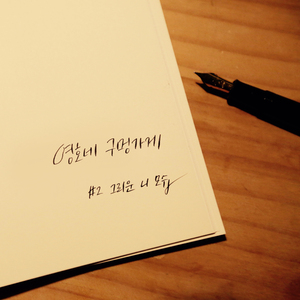 영호네 구멍가게
#2 그리운 니 모습